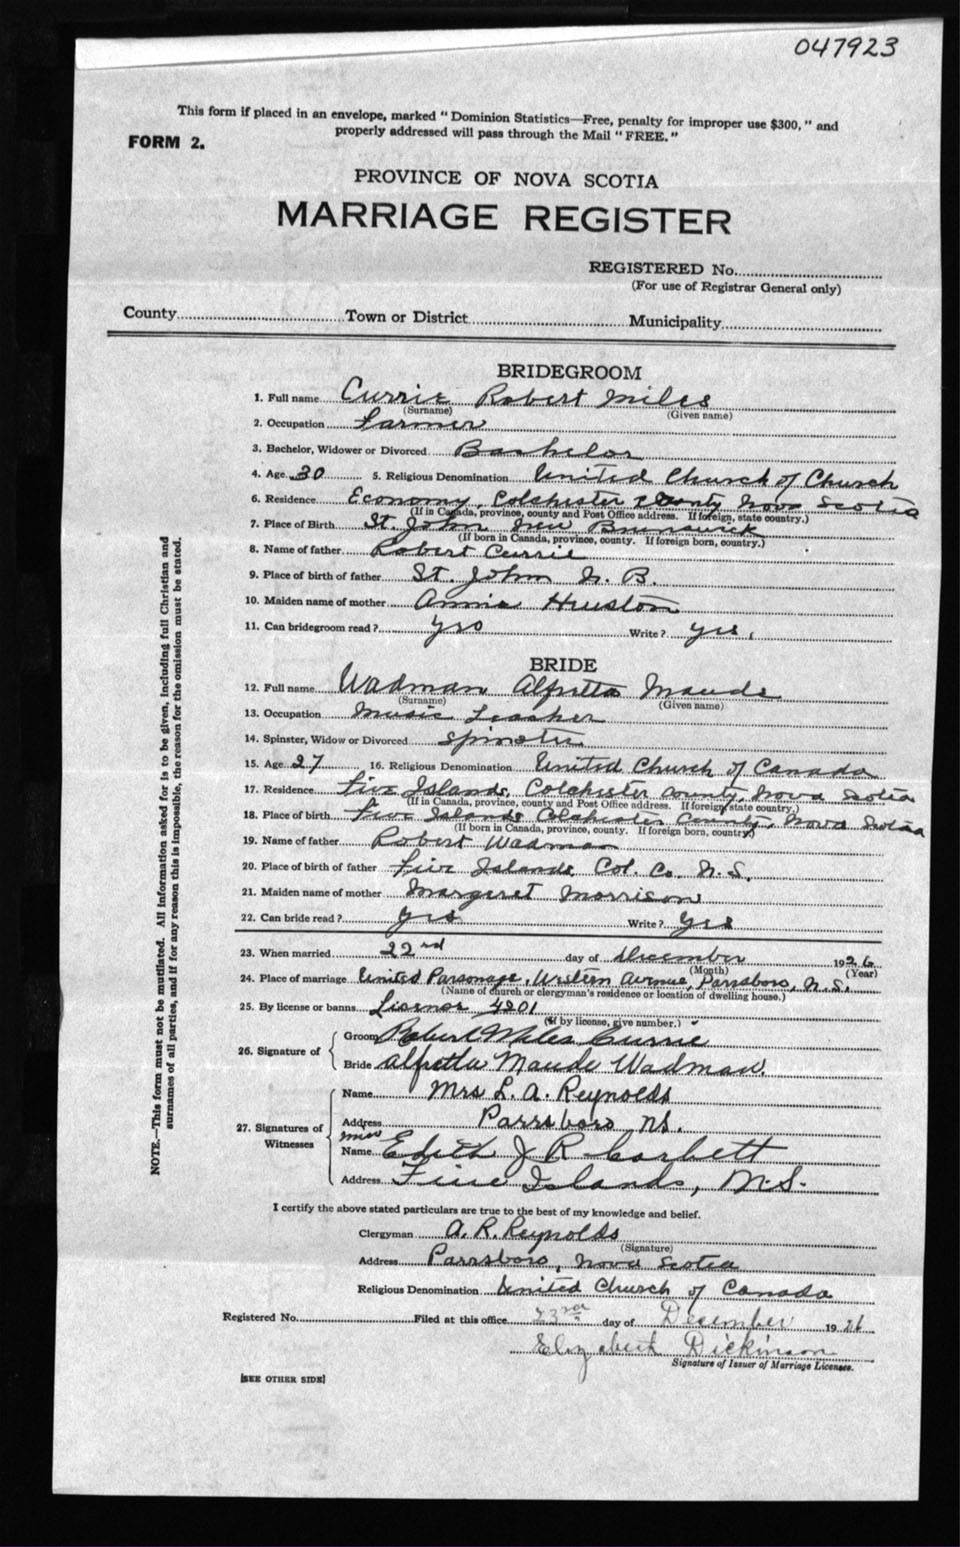 047923
This form if placed in an envelope, marked "Dominion Statistics—Free, penalty for improper use $300," and
properly addressed will pass through the Mail "FREE."
FORM 2.
PROVINCE OF NOVA SCOTIA
MARRIAGE REGISTER
REGISTERED No.
(For use of Registrar General only)
County Town or District Municipality
BRIDEGROOM
1. Full name Currie Robert Miles
(Surname) (Given name)
2. Occupation Farmer
3. Bachelor, Widower or Divorced Bachelor
4. Age 30 5. Religious Denomination United Church of Church
6. Residence Economy, Colchester County Nova Scotia
(If in Canada, province, county and Post Office address. If foreign, state country.)
7. Place of Birth St. John New Brunswick
(If born in Canada, province, county. If foreign born, country.)
8. Name of father Robert Currie
9. Place of birth of father St. John N. B.
10. Maiden name of mother Annie Hueston
11. Can bridegroom read? yes Write? yes,
BRIDE
12. Full name Wadman Alfretta Maude
(Surname) (Given name)
13. Occupation Music Teacher
14. Spinster, Widow or Divorced Spinster
15. Age 27 16. Religious Denomination United Church of Canada
17. Residence Five Islands, Colchester County, Nova Scotia
(If in Canada, province, county and Post Office address. If foreign, state country.)
18. Place of birth Five Islands Colchester County, Nova Scotia
(If born in Canada, province, county. If foreign born, country.)
19. Name of father Robert Wadman
20. Place of birth of father Five Islands Col. Co. N. S.
21. Maiden name of mother Margeret Morrison
22. Can bride read? yes Write? yes
23. When married 22nd day of December 1926
(Month) (Year)
24. Place of marriage United Parsonage, Western Avenue, Parrsboro, N. S.
(Name of church or clergyman's residence or location of dwelling house.)
25. By license or banns License 4201
(If by license, give number.)
26. Signature of
Groom Robert Miles Currie
Bride Alfretta Maude Wadman.
27. Signatures of Witnesses
Name Mrs L. A. Reynolds
Address Parrsboro NS.
Miss
Name Edith J R Corbett
Address Five Islands, N.S.
I certify the above stated particulars are true to the best of my knowledge and belief.
Clergyman A. R. Reynolds
(Signature)
Address Parrsboro, Nova Scotia
Religious Denomination United Church of Canada
Registered No. Filed at this office 23rd day of December 1926
Elizabeth Dickinson
Signature of Issuer of Marriage Licenses.
[SEE OTHER SIDE]
NOTE.—This form must not be mutilated. All information asked for is to be given, including full Christian and
surnames of all parties, and if for any reason this is impossible, the reason for the omission must be stated.